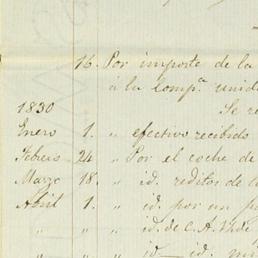 16. Por importe de la
á la comp.ª unid
Se re
1830
Enero 1. " efectivo recibido
Febrero 24 " Por el coche de
Marzo 18. " id. reditos de l
Abril 1. " id. por un p
" " id. de C. A. 
" " id— id.